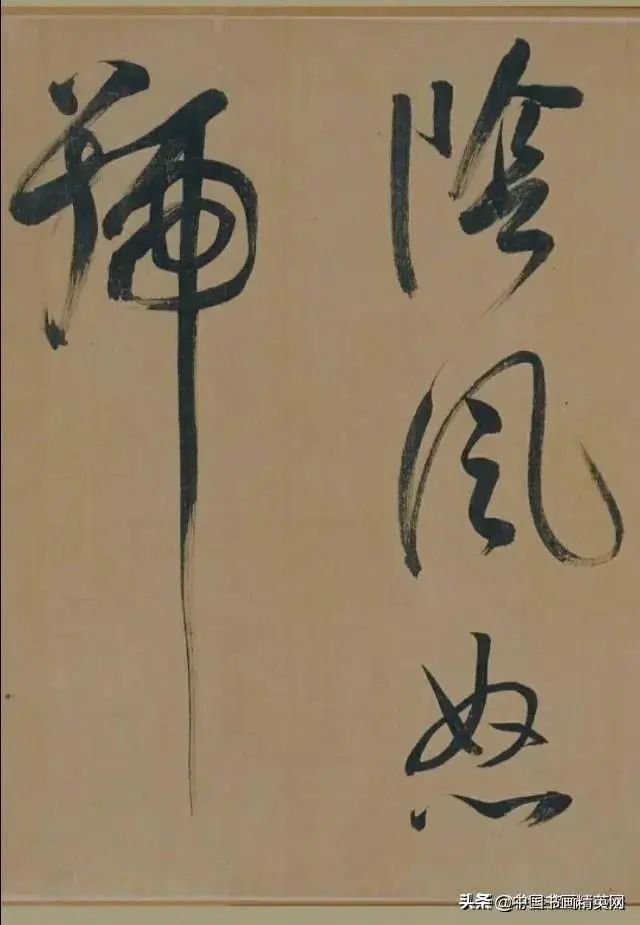 陰風怒
號
头条 @中国书画精英网